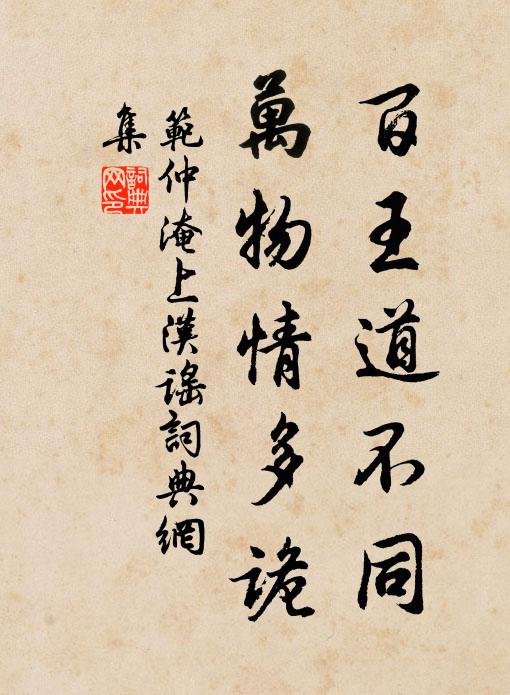 百王道不同
萬物情多詭
範仲淹上漢謠詞典網
集
詞典
网印